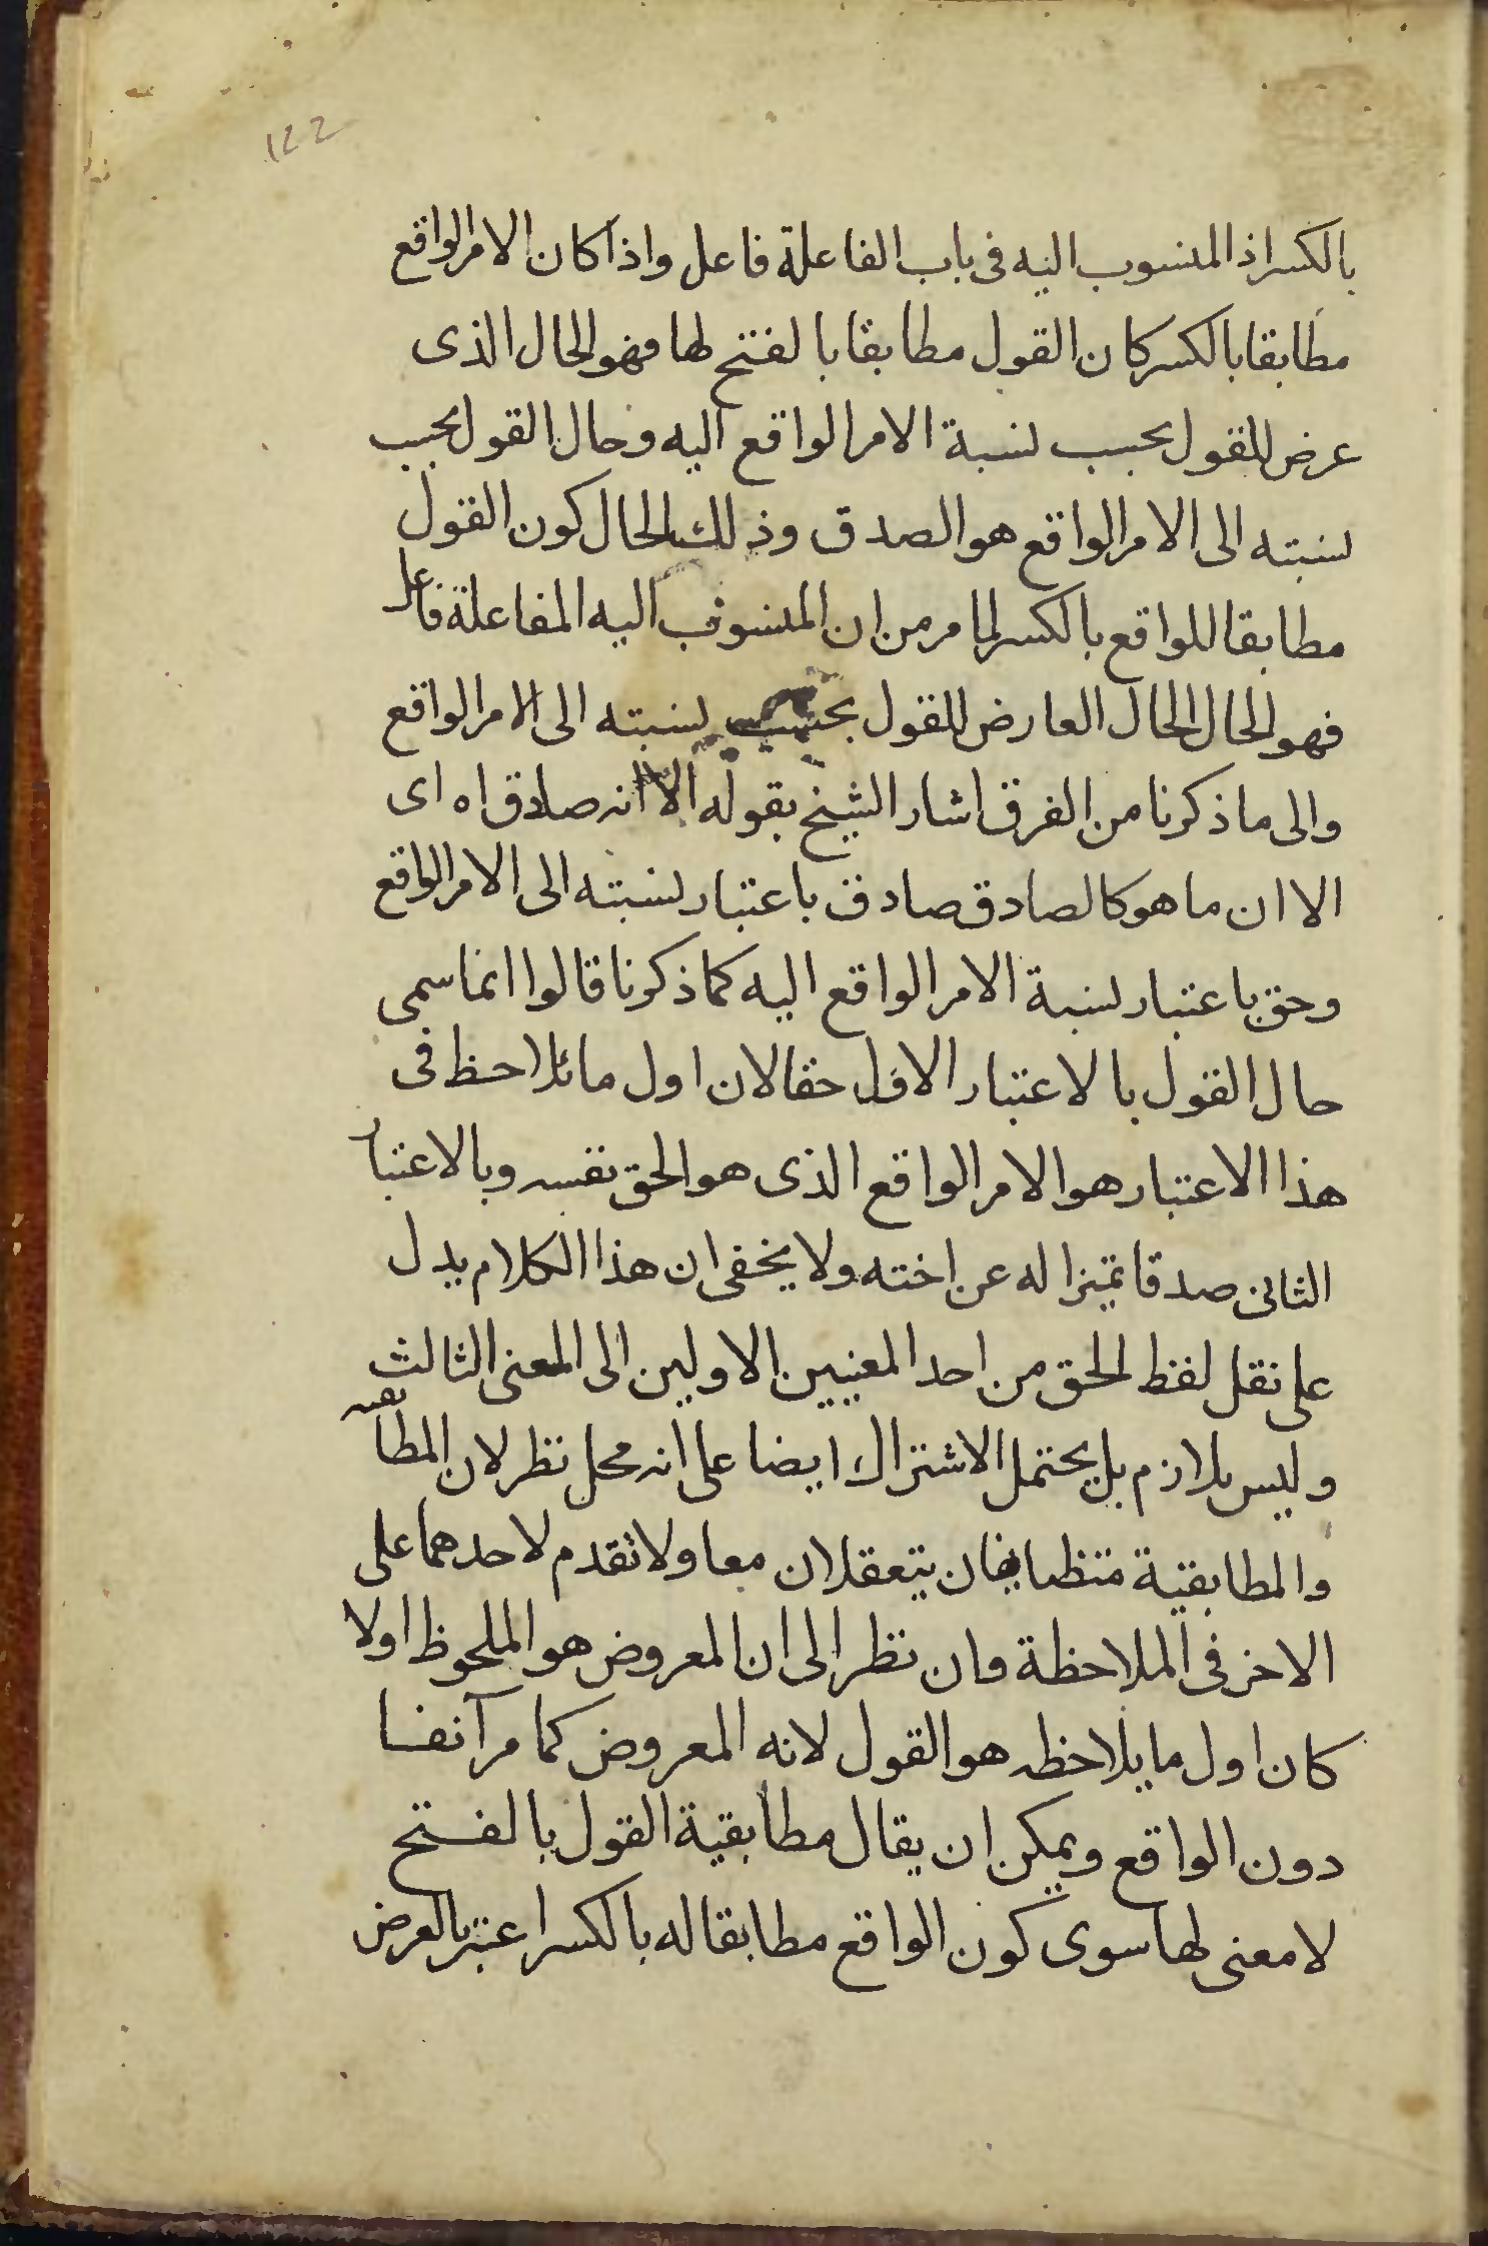 122
بالكسر اذ المنسوب اليه فى باب الفاعلة فاعل واذا كان الامر الواقع
مطابقا بالكسر كان القول مطابقا بالفتح لها فهو الحال الذى
عرض للقول بحسب نسبة الامر الواقع اليه وحال القول بحسب
نسبته الى الامر الواقع هو الصدق وذلك الحال كون القول
مطابقا للواقع بالكسر لما مر من ان المنسوب اليه المفاعلة فاعل
فهو الحال الحال العارض للقول بحسب نسبته الى الامر الواقع
والى ما ذكرنا من الفرق اشار الشيخ بقوله الا انه صادق اه اى
الا ان ما هو كالصادق صادق باعتبار نسبته الى الامر الواقع
وحق باعتبار نسبة الامر الواقع اليه كما ذكرنا قالوا انما سمى
حال القول بالاعتبار الاول حقا لان اول ما يلاحظ فى
هذا الاعتبار هو الامر الواقع الذى هو الحق نفسه وبالاعتبار
الثانى صدقا تميزا له عن اخته ولا يخفى ان هذا الكلام يدل
على نقل لفظ الحق من احد المعنيين الاولين الى المعنى الثالث
وليس بلازم بل يحتمل الاشتراك ايضا على انه محل نظر لان المطابقيه
والمطابقية متظايفان يتعقلان معا ولا تقدم لاحدهما على
الاخر فى الملاحظة وان نظر الى ان المعروض هو الملحوظ اولا
كان اول ما يلاحظه هو القول لانه المعروض كما مر آنفا
دون الواقع ويمكن ان يقال مطابقية القول بالفتح
لا معنى لها سوى كون الواقع مطابقا له بالكسر اعتبر بالعرض